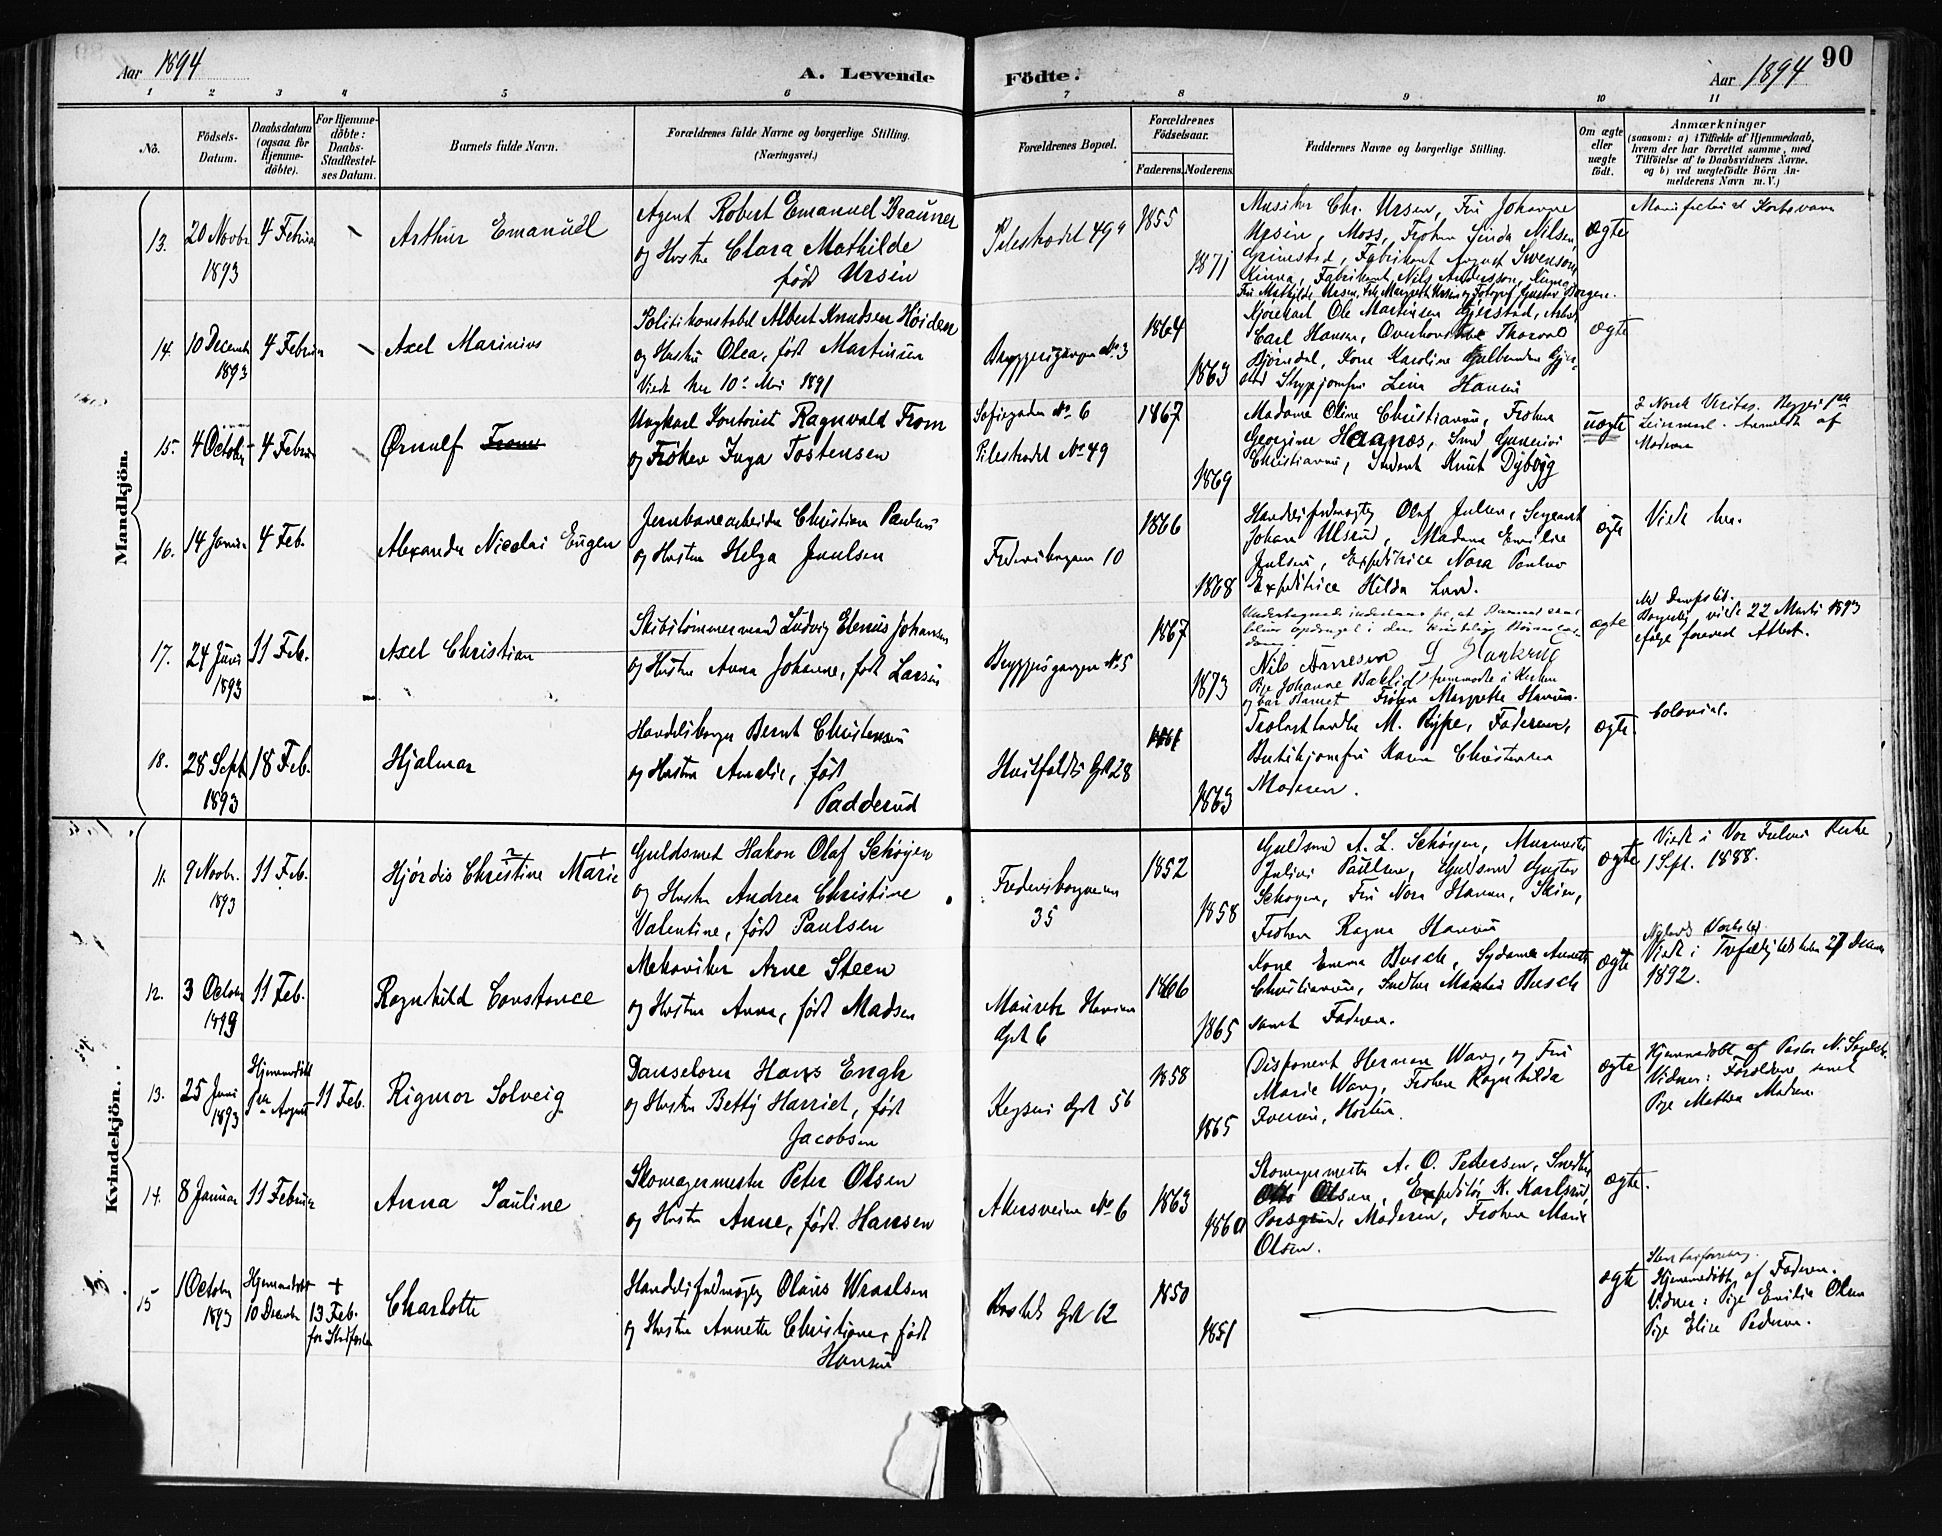 Aar 1894
A. Levende
Födte.
Aar 1894
90
1 2 3 4 5 6 7 8 9 10 11
No.
Födsels-Datum.
Daabsdatum (ogsaa for Hjemme-döbte).
For Hjemme-döbte: Daabs-Stadfæstel-ses Datum.
Barnets fulde Navn.
Forældrenes fulde Navne og borgerlige Stilling.
(Næringsvei.)
Forældrenes Bopæl.
Forældrenes Födselsaar.
Faderens. Moderens.
Faddernes Navne og borgerlige Stilling.
Om ægte eller uægte født.
Anmærkninger
(saasom: a) i Tilfælde af Hjemmedaab,
hvem der har forrettet samme, med
Tilföielse af to Daabsvidners Navne.
og b) ved uægtefödte Börn An-
melderens Navn m. V.)
Mandkjön.
13. 20 Novbr 1893 4 Februar
Arthur Emanuel
Agent Robert Emanuel Brauner
og Hustru Clara Mathilde
født Ursin
Pilestrædet 49
1855
1871
Musiker Chr. Ursin, Fru Johanne
Ursin, Moss, Frøken Nilsen,
Grimstad, Fabrikant August Swenson,
Kinna, Fabrikant Nils Andersson, Kinna
Fru Mathilde Ursin, Frk. Margreth Ursin og Fotograf Gustav Borgen.
ægte
14. 10 Decemb 1893 4 Februar
Axel Marinius
Politikonstabel Albert Knudsen Höiden
og Hustru Olea, født Martinsen
Viede her 10 Mai 1891
Bryggerigangen No. 3
1864
1863
Kjørekarl Ole Martinsen Gjerstad, Arbeid.
Carl Hansen, Thorvald
Bjørndal, Kone Karoline Gulbrandsen Gjer-
stad Strygejomfru Lina Hansen
ægte
15. 4 October 4 Februar
Ørnulf From
Ungkarl Kontorist Ragnvald From
og Frøken Inga Tostensen
Sofiegaden No. 6
Pilestrædet No 49
1867
1869
Madame Oline Christiansen, Frøken
Georgine Haanæs, Smed Gunerius
Christiansen, Student Knut Dybvig
uægte
Anmeldt af
Moderen
16. 14 Januar 4 Feb.
Alexander Nicolai Eugen
Jernbanearbeider Christian Paulsen
og Hustru Helga Juulsen
Fredensborgveien 10
1866
1868
Handelsfuldmægtig Olaf Julsen, Sergeant
Johan Ulsrud, Madame Emilie
Julsen, Expeditrice Nora Paulsen
Expeditrice Hilda Lund.
ægte
Viede her.
17. 24 Juni 1893 11 Feb.
Axel Christian
Skibstømmermand Ludvig Elenius Johansen
og Hustru Anna Johanne, født Larsen
Bryggerigangen No. 5
1867
1873
Undertegnede indestaar for, at Barnet skal
blive opdraget i den kristelige Børnelær-
dom:
Nils Arnesen
Pige Johanne Bæklid fremmødte i Kirken
og bar Barnet Frøken Margrethe Hansen.
ægte
Borgerlig viede 22 Marts 1893
ifølge forevist Attest.
18. 28 Sept. 1893 18 Feb.
Hjalmar
Handelsborger Bernt Christensen
og Hustru Amalie, født
Padderud
Huitfeldts Gd 28
1861
1863
M. Rype, Faderen,
Butikjomfru Karen Christensen
Moderen.
ægte.
Colonial.
Kvindekjön.
11. 9 Novbr. 1893 11 Feb.
Hjørdis Christine Marie
Guldsmed Hakon Olaf Schøyen
og Hustru Andrea Christine
Valentine, født Paulsen
Fredensborgveien
35
1852
1858
Guldsmed A. L. Schøyen, Murmester
Julius Paulsen, Guldsmed Gustav
Schøyen, Fru Nora Hansen, Skien,
Frøken Ragna Hansen
ægte
Viede i Vor Frelsers Kirke
1 Sept. 1888.
12. 3 October 11 Feb.
Ragnhild Constance
Mekaniker Arne Steen
og Hustru Anna, født Madsen
Mauritz Hansens
Gd 6
1866
1865
Kone Emma Busch, Sydame Annette
Christiansen, Snedker Busch
samt Faderen.
ægte
Viede i Trefoldighedskirken 27 Decem
1892.
13. 25 Juni 1893 Hjemmedøbt August 11 Feb.
Rigmor Solveig
Danselærer Hans Engh
og Hustru Betty Harriet, født
Jacobsen
Keysers Gd 5b
1858
1865
Disponent Herman Wang, og Fru
Marie Wang, Frøken Ragnhilda
Iversen, Horten.
ægte
Hjemmedøbt af Pastor
Vidner: Forældrene samt
Pige Mathea Madsen.
14. 8 Januar 11 Februar
Anna Pauline
Skomagermester Peter Olsen
og Hustru Anne, født Hansen
Akersveien No 6
1863
1860
Skomagermester A. O. Pedersen, Snedker
Otto Olsen, Expeditør K. Karlsrud,
Porsgrund, Moderen, Frøken Marie
Olsen.
ægte.
15 1 October 1893 Hjemmedøbt 10 Decemb + 13 Feb. før Stadfæst
Charlotte
Handelsfuldmægtig Olaus Wraalsen
og Hustru Annette Christiane, født
Hansen
Gd 62
1850
1851
ægte
Hjemmedøbt af Faderen.
Vidner: Pige Emilie Olsen
Pige Elise Pedersen.